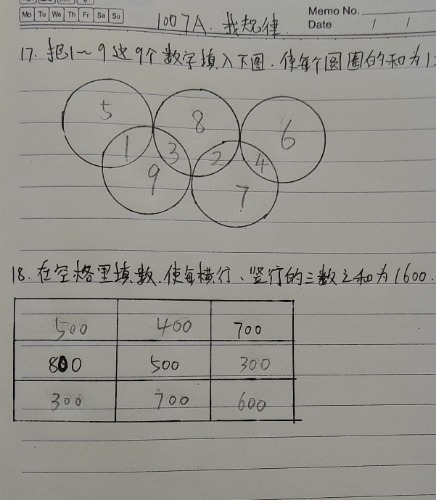 Memo No.
Mo Tu We Th Fr Sa Su
Date / /
1007A. 找规律
17. 把1~9这9个数字填入下图, 使每个圆圈的和为1
5 8 6
1 3 2 4
9 7
18. 在空格里填数, 使每横行、竖行的三数之和为1600.
500 400 700
800 500 300
300 700 600